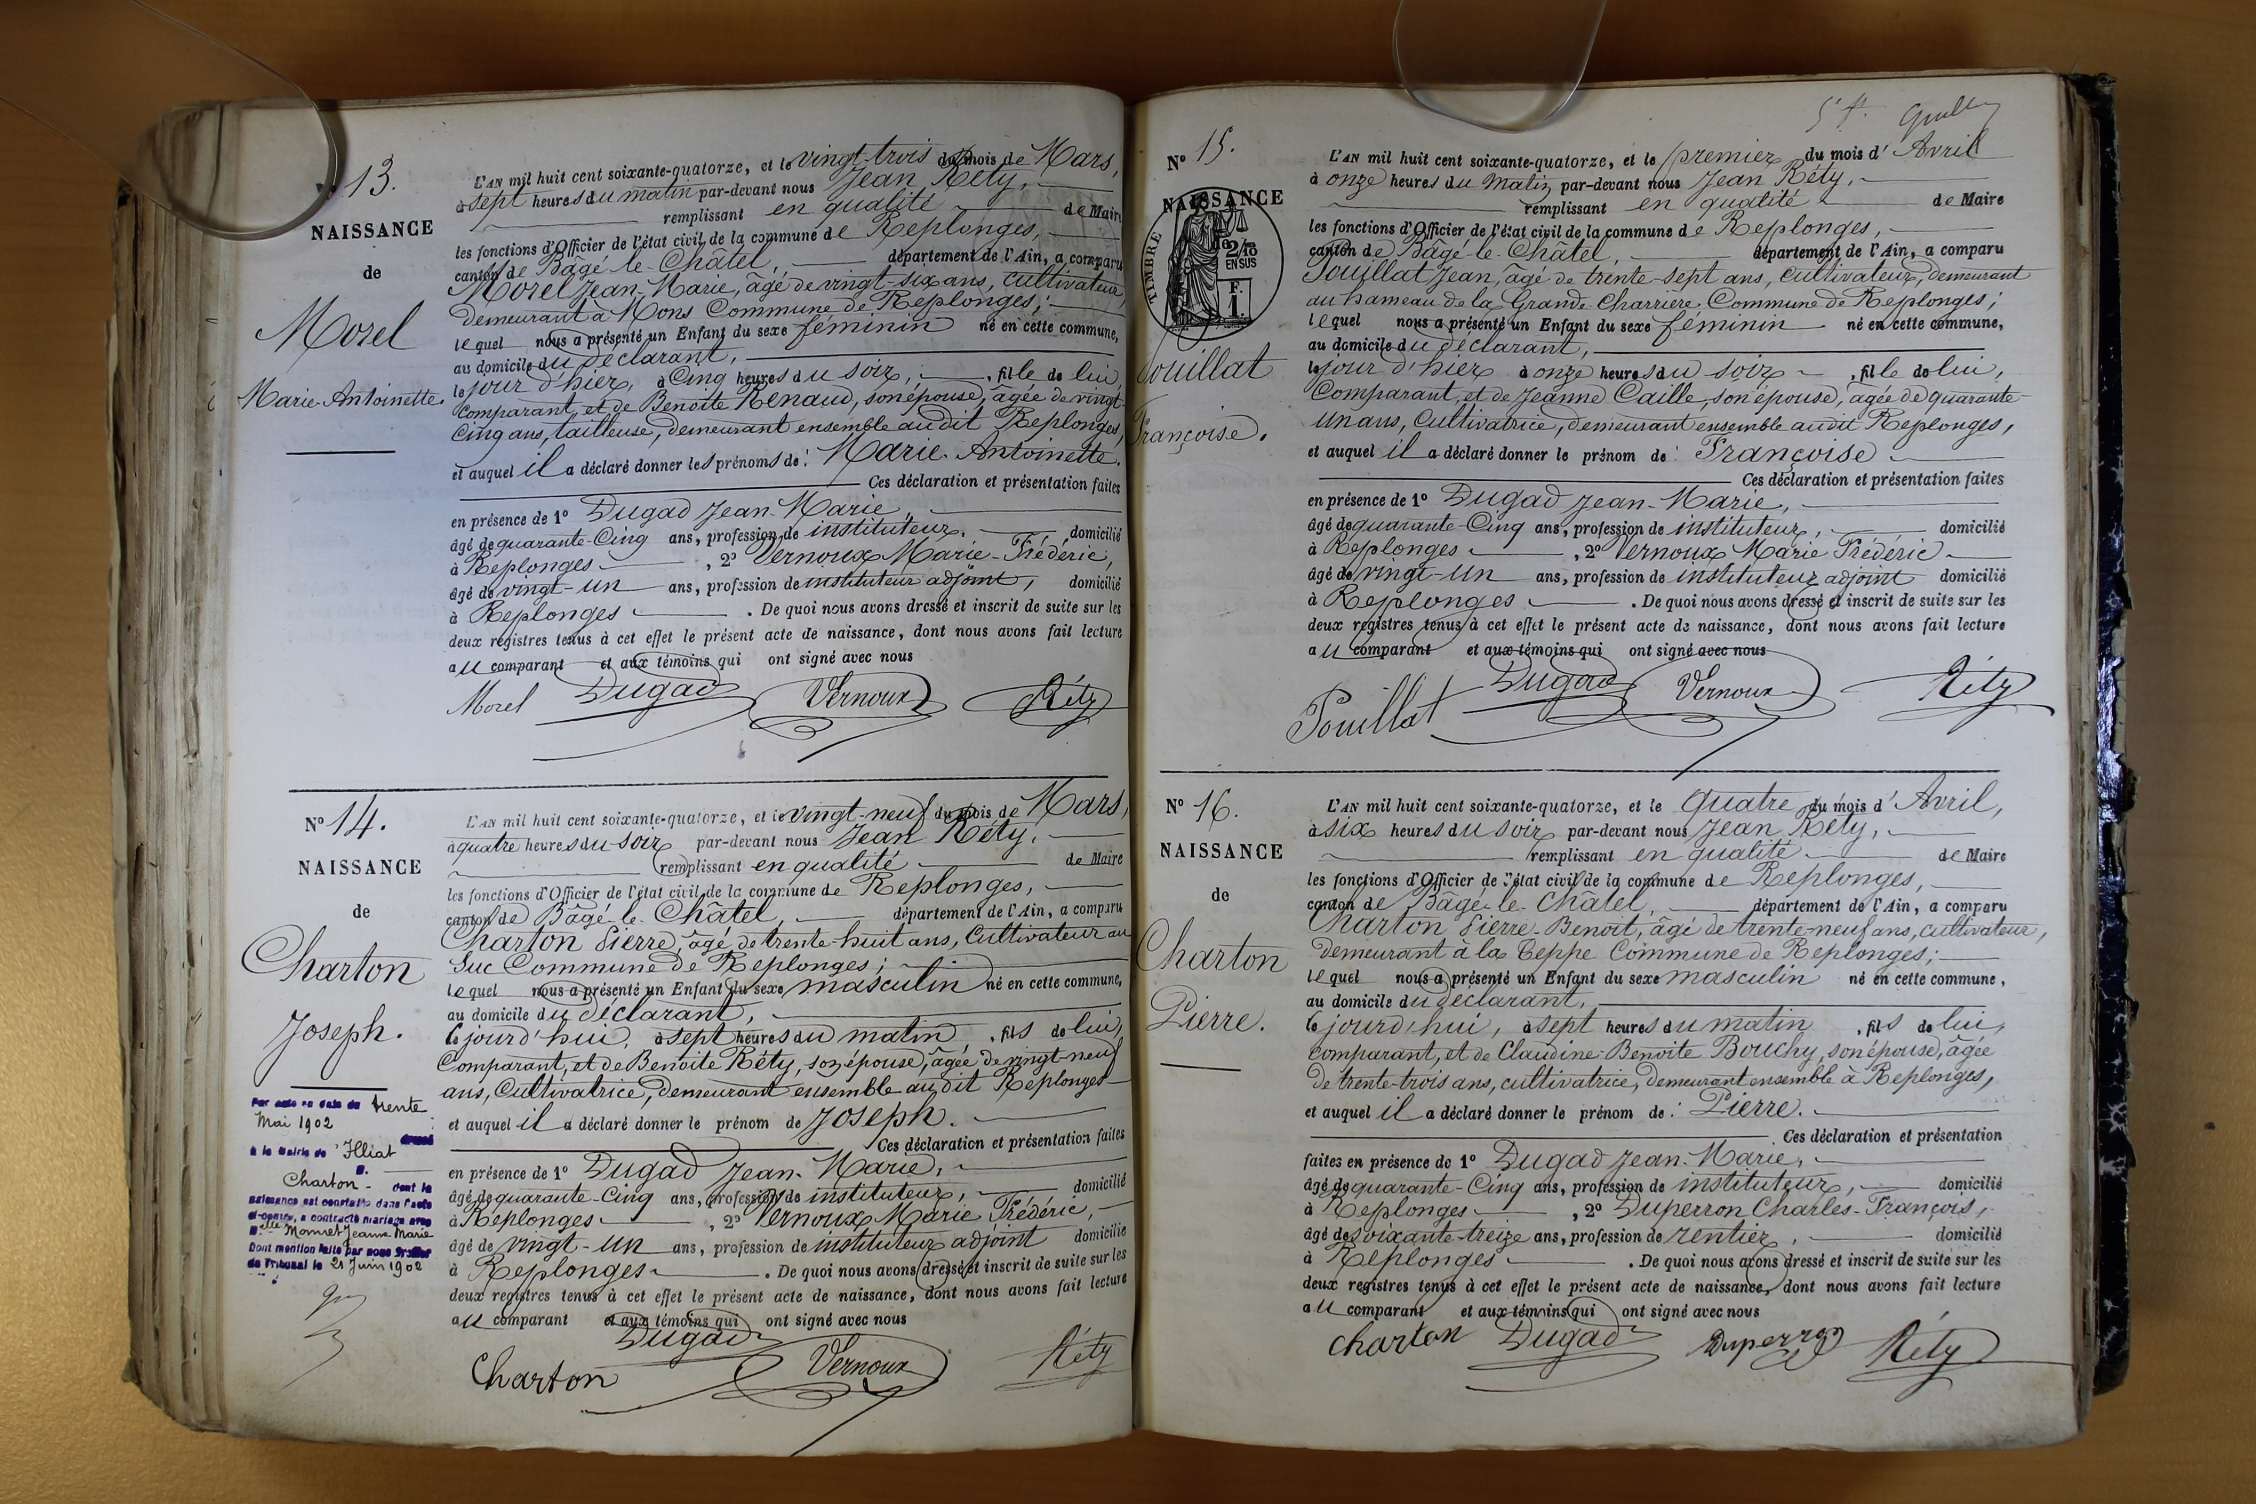 13.
NAISSANCE
de
Morel
Marie-Antoinette.
L'AN mil huit cent soixante-quatorze, et le vingt-trois du mois de Mars,
à sept heures du matin par-devant nous Jean Réty,
remplissant en qualité de Maire
les fonctions d'Officier de l'état civil de la commune de Replonges,
canton de Bâgé-le-Châtel, département de l'Ain, a comparu
Morel Jean-Marie, âgé de vingt-six ans, cultivateur,
demeurant à Mons Commune de Replonges;
lequel nous a présenté un Enfant du sexe féminin né en cette commune,
au domicile du déclarant,
le jour d'hier, à Cinq heures du soir, fille de lui,
Comparant, et de Benoite Renaud, son épouse, âgée de vingt-
Cinq ans, tailleuse, demeurant ensemble audit Replonges,
et auquel il a déclaré donner les prénoms de: Marie-Antoinette.
Ces déclaration et présentation faites
en présence de 1º Dugad Jean-Marie,
âgé de quarante-Cinq ans, profession de instituteur, domicilié
à Replonges, 2º Vernoux Marie-Frédéric,
âgé de vingt-un ans, profession de instituteur adjoint, domicilié
à Replonges. De quoi nous avons dressé et inscrit de suite sur les
deux registres tenus à cet effet le présent acte de naissance, dont nous avons fait lecture
au comparant et aux témoins qui ont signé avec nous
Morel Dugad Vernoux Réty
Nº 14.
NAISSANCE
de
Charton
Joseph.
Par acte en date du trente
Mai 1902
dressé
à la Mairie de Illiat
M.
Charton - dont la
naissance est constatée dans l'acte
ci-contre, a contracté mariage avec
Melle Monnet Jeanne Marie
Dont mention faite par nous Greffier
du Tribunal le 21 Juin 1902
L'AN mil huit cent soixante-quatorze, et le vingt-neuf du mois de Mars,
à quatre heures du soir par-devant nous Jean Réty,
remplissant en qualité de Maire
les fonctions d'Officier de l'état civil de la commune de Replonges,
canton de Bâgé-le-Châtel, département de l'Ain, a comparu
Charton Pierre, âgé de trente-huit ans, Cultivateur au
Suc Commune de Replonges;
lequel nous a présenté un Enfant du sexe masculin né en cette commune,
au domicile du déclarant,
le jourd'hui, à sept heures du matin, fils de lui,
Comparant, et de Benoite Réty, son épouse, âgée de vingt-neuf
ans, Cultivatrice, demeurant ensemble audit Replonges
et auquel il a déclaré donner le prénom de Joseph.
Ces déclaration et présentation faites
en présence de 1º Dugad Jean-Marie,
âgé de quarante-Cinq ans, profession de instituteur, domicilié
à Replonges, 2º Vernoux Marie Frédéric,
âgé de vingt-un ans, profession de instituteur adjoint domicilié
à Replonges. De quoi nous avons dressé et inscrit de suite sur les
deux registres tenus à cet effet le présent acte de naissance, dont nous avons fait lecture
au comparant et aux témoins qui ont signé avec nous
Charton Dugad Vernoux Réty
Nº 15.
NAISSANCE
TIMBRE
2/10
EN SUS
F.
1.
Pouillat
Françoise.
L'AN mil huit cent soixante-quatorze, et le premier du mois d'Avril
à onze heures du matin par-devant nous Jean Réty,
remplissant en qualité de Maire
les fonctions d'Officier de l'état civil de la commune de Replonges,
canton de Bâgé-le-Châtel, département de l'Ain, a comparu
Pouillat Jean, âgé de trente-sept ans, Cultivateur, demeurant
au hameau de la Grande-Charrière Commune de Replonges;
lequel nous a présenté un Enfant du sexe féminin né en cette commune,
au domicile du déclarant,
le jour d'hier à onze heures du soir, fille de lui,
Comparant, et de Jeanne Caille, son épouse, âgée de quarante-
un ans, Cultivatrice, demeurant ensemble audit Replonges,
et auquel il a déclaré donner le prénom de: Françoise
Ces déclaration et présentation faites
en présence de 1º Dugad Jean-Marie,
âgé de quarante-Cinq ans, profession de instituteur, domicilié
à Replonges, 2º Vernoux Marie Frédéric
âgé de vingt-un ans, profession de instituteur adjoint domicilié
à Replonges. De quoi nous avons dressé et inscrit de suite sur les
deux registres tenus à cet effet le présent acte de naissance, dont nous avons fait lecture
au comparant et aux témoins qui ont signé avec nous
Pouillat Dugad Vernoux Réty
Nº 16.
NAISSANCE
de
Charton
Pierre.
L'AN mil huit cent soixante-quatorze, et le quatre du mois d'Avril,
à six heures du soir par-devant nous Jean Réty,
remplissant en qualité de Maire
les fonctions d'Officier de l'état civil de la commune de Replonges,
canton de Bâgé-le-Châtel, département de l'Ain, a comparu
Charton Pierre-Benoit, âgé de trente-neuf ans, cultivateur,
demeurant à la Teppe Commune de Replonges;
lequel nous a présenté un Enfant du sexe masculin né en cette commune,
au domicile du déclarant,
le jourd'hui, à sept heures du matin, fils de lui,
comparant, et de Claudine-Benoite Bouchy, son épouse, âgée
de trente-trois ans, cultivatrice, demeurant ensemble à Replonges,
et auquel il a déclaré donner le prénom de: Pierre.
Ces déclaration et présentation
faites en présence de 1º Dugad Jean-Marie,
âgé de quarante-Cinq ans, profession de instituteur, domicilié
à Replonges, 2º Duperron Charles-François,
âgé de soixante-treize ans, profession de rentier, domicilié
à Replonges. De quoi nous avons dressé et inscrit de suite sur les
deux registres tenus à cet effet le présent acte de naissance, dont nous avons fait lecture
au comparant et aux témoins qui ont signé avec nous
Charton Dugad Duperron Réty